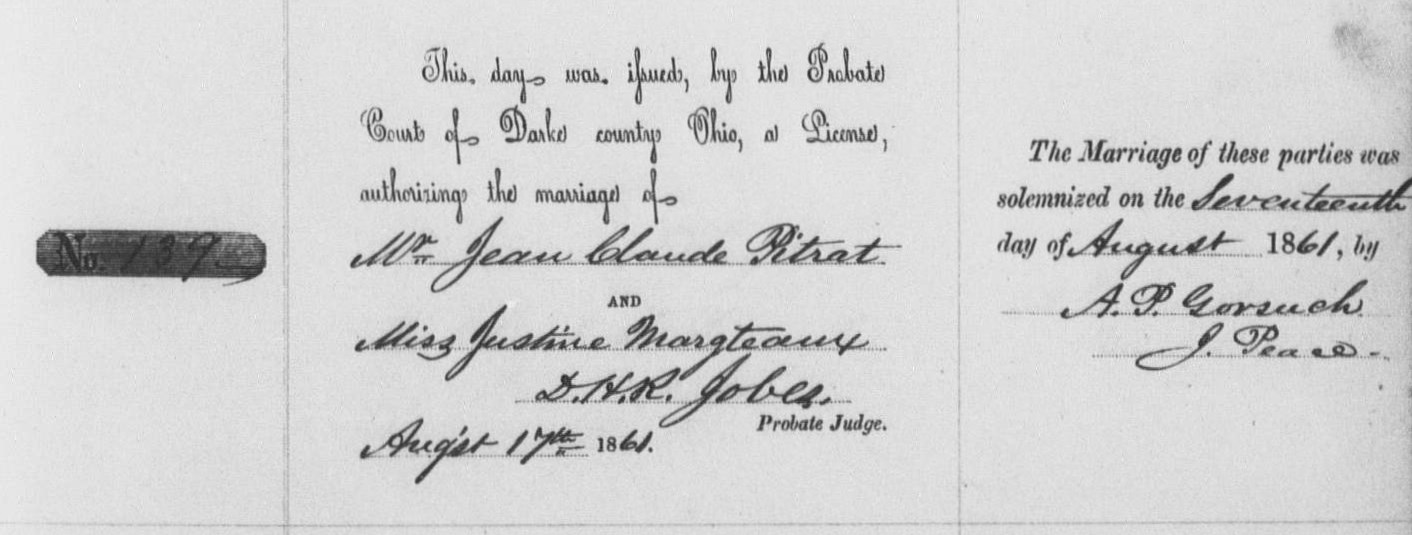 No. 139
This day was issued, by the Probate
Court of Darke county Ohio, a License,
authorizing the marriage of
Mr Jean Claude Pitrat
AND
Miss Justine Margteaux
D.H.R. Jobes.
Probate Judge.
Aug'st 17th 1861.
The Marriage of these parties was
solemnized on the Seventeenth
day of August 1861, by
A. P. Gorsuch
J. Peace.